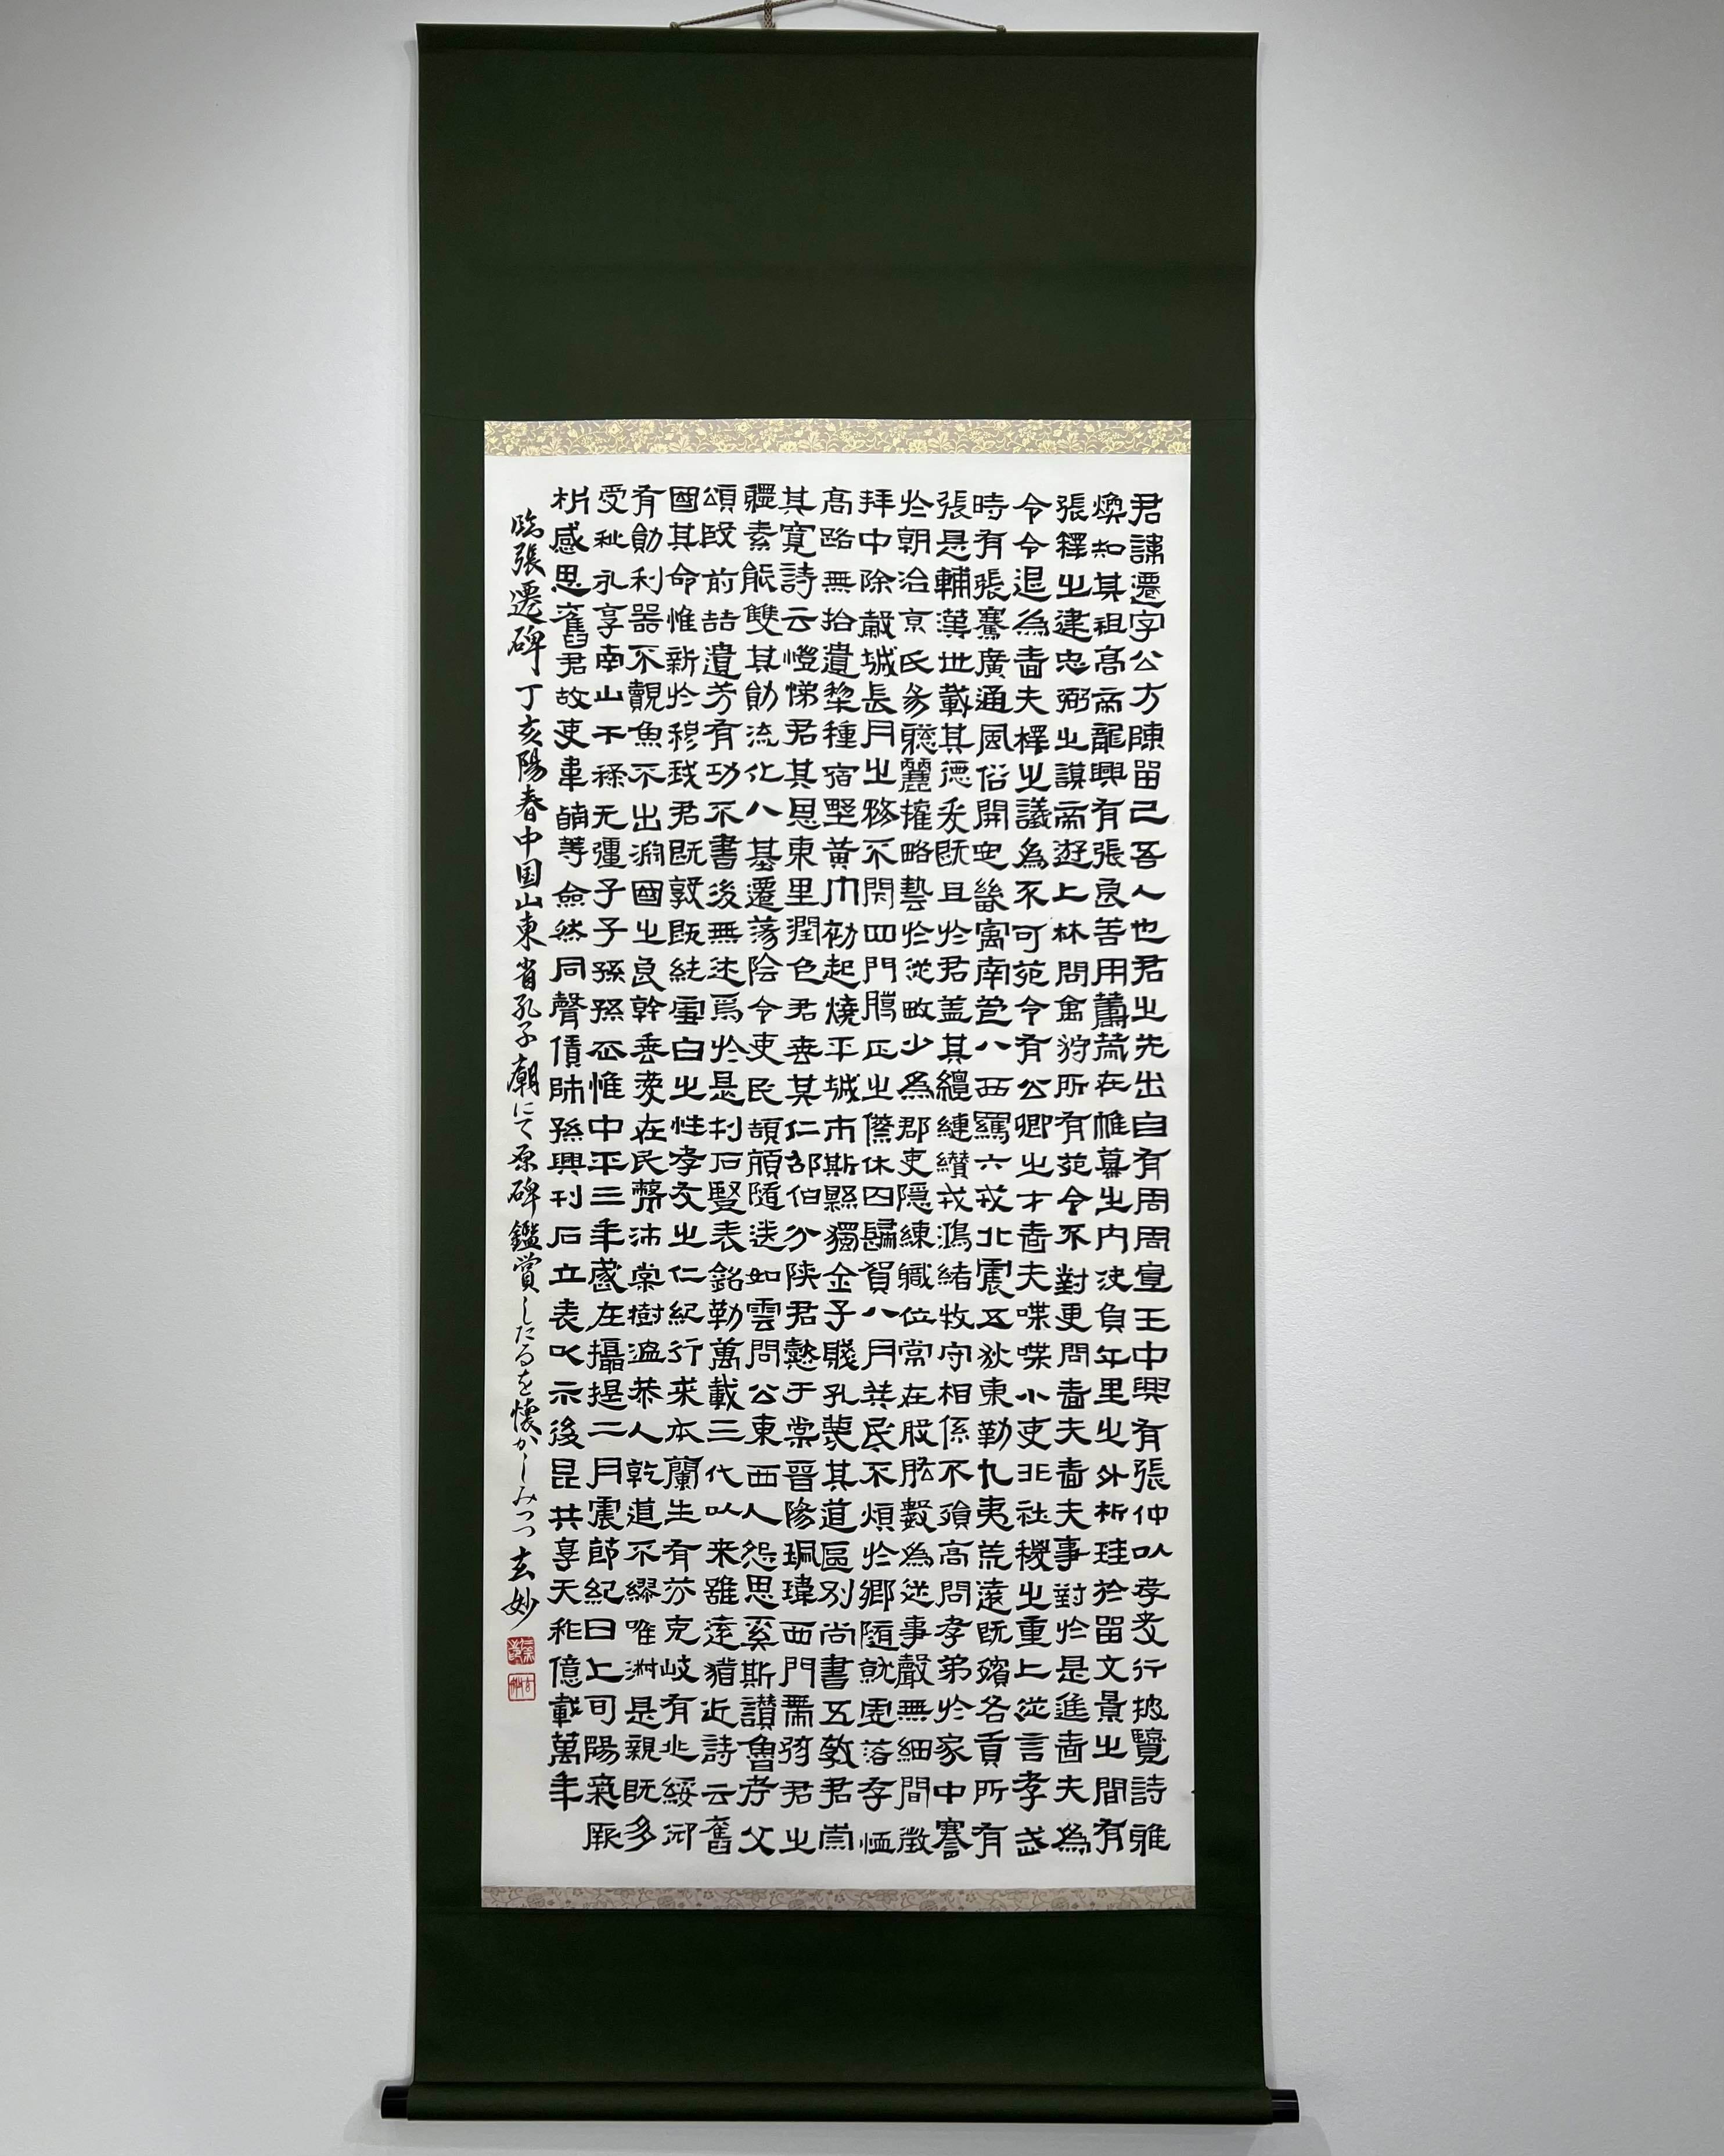 君諱遷字公方陳留己吾人也君之先出自有周周宣王中興有張仲以孝友行披覽詩雅
煥知其祖高帝龍興有張良善用籌策在帷幕之内決負千里之外析珪於留文景之間有
張釋之建忠弼之謨帝遊上林問禽狩所有苑令不對更問嗇夫嗇夫事對於是進嗇夫為
令令退為嗇夫釋之議為不可苑令有公卿之才嗇夫喋喋小吏非社稷之重上從言孝武
時有張騫廣通風俗開定畿寓南苞八西羈六戎北震五狄東勤九夷荒遠既殯各貢所有
張是輔漢世載其德爰既且於君蓋其纏縺纘戎鴻緒牧守相係不殞高問孝弟於家中謇
於朝治京氏易聰麗權略藝於從畋少為郡吏隱練職位常在股肱數為從事聲無細聞徵
拜中除穀城長月之務不閉四門臘正之傺休囚歸賀八月筭民不煩於鄉隨就虛落存恤
高路無拾遺犁種宿野黃巾初起燒平城市斯縣獨全子賤孔蔑其道區別尚書五教君崇
其寬詩云愷悌君其恩東里潤色君垂其仁邵伯分陝君懿于棠晉陽珮瑋西門帶弦君之
疆素能雙其勛流化八基遷蕩陰令吏民頡頏隨送如雲周公東西人怨思奚斯讚魯考父
頌殷前喆遺芳有功不書後無述焉於是刊石豎表銘勒萬載三代以來雖遠猶近詩云舊
國其命惟新於穆我君既敦既純雪白之性孝友之仁紀行求本蘭生有芬克岐有兆綏御
有勛利器不覿魚不出淵國之良幹垂愛在民蔽沛棠樹溫恭人乾道不繆唯淑是親既多
受祉永享南山不祿无疆子子孫孫惟中平三年歲在攝提二月震節紀日上旬陽氣厥
析感思舊君故吏韋萌等僉然同聲賃師孫興刊石立表以示後昆共享天祚億載萬年
臨張遷碑 丁亥陽春中国山東省孔子廟にて原碑鑑賞したるを懐かしみつつ 玄妙